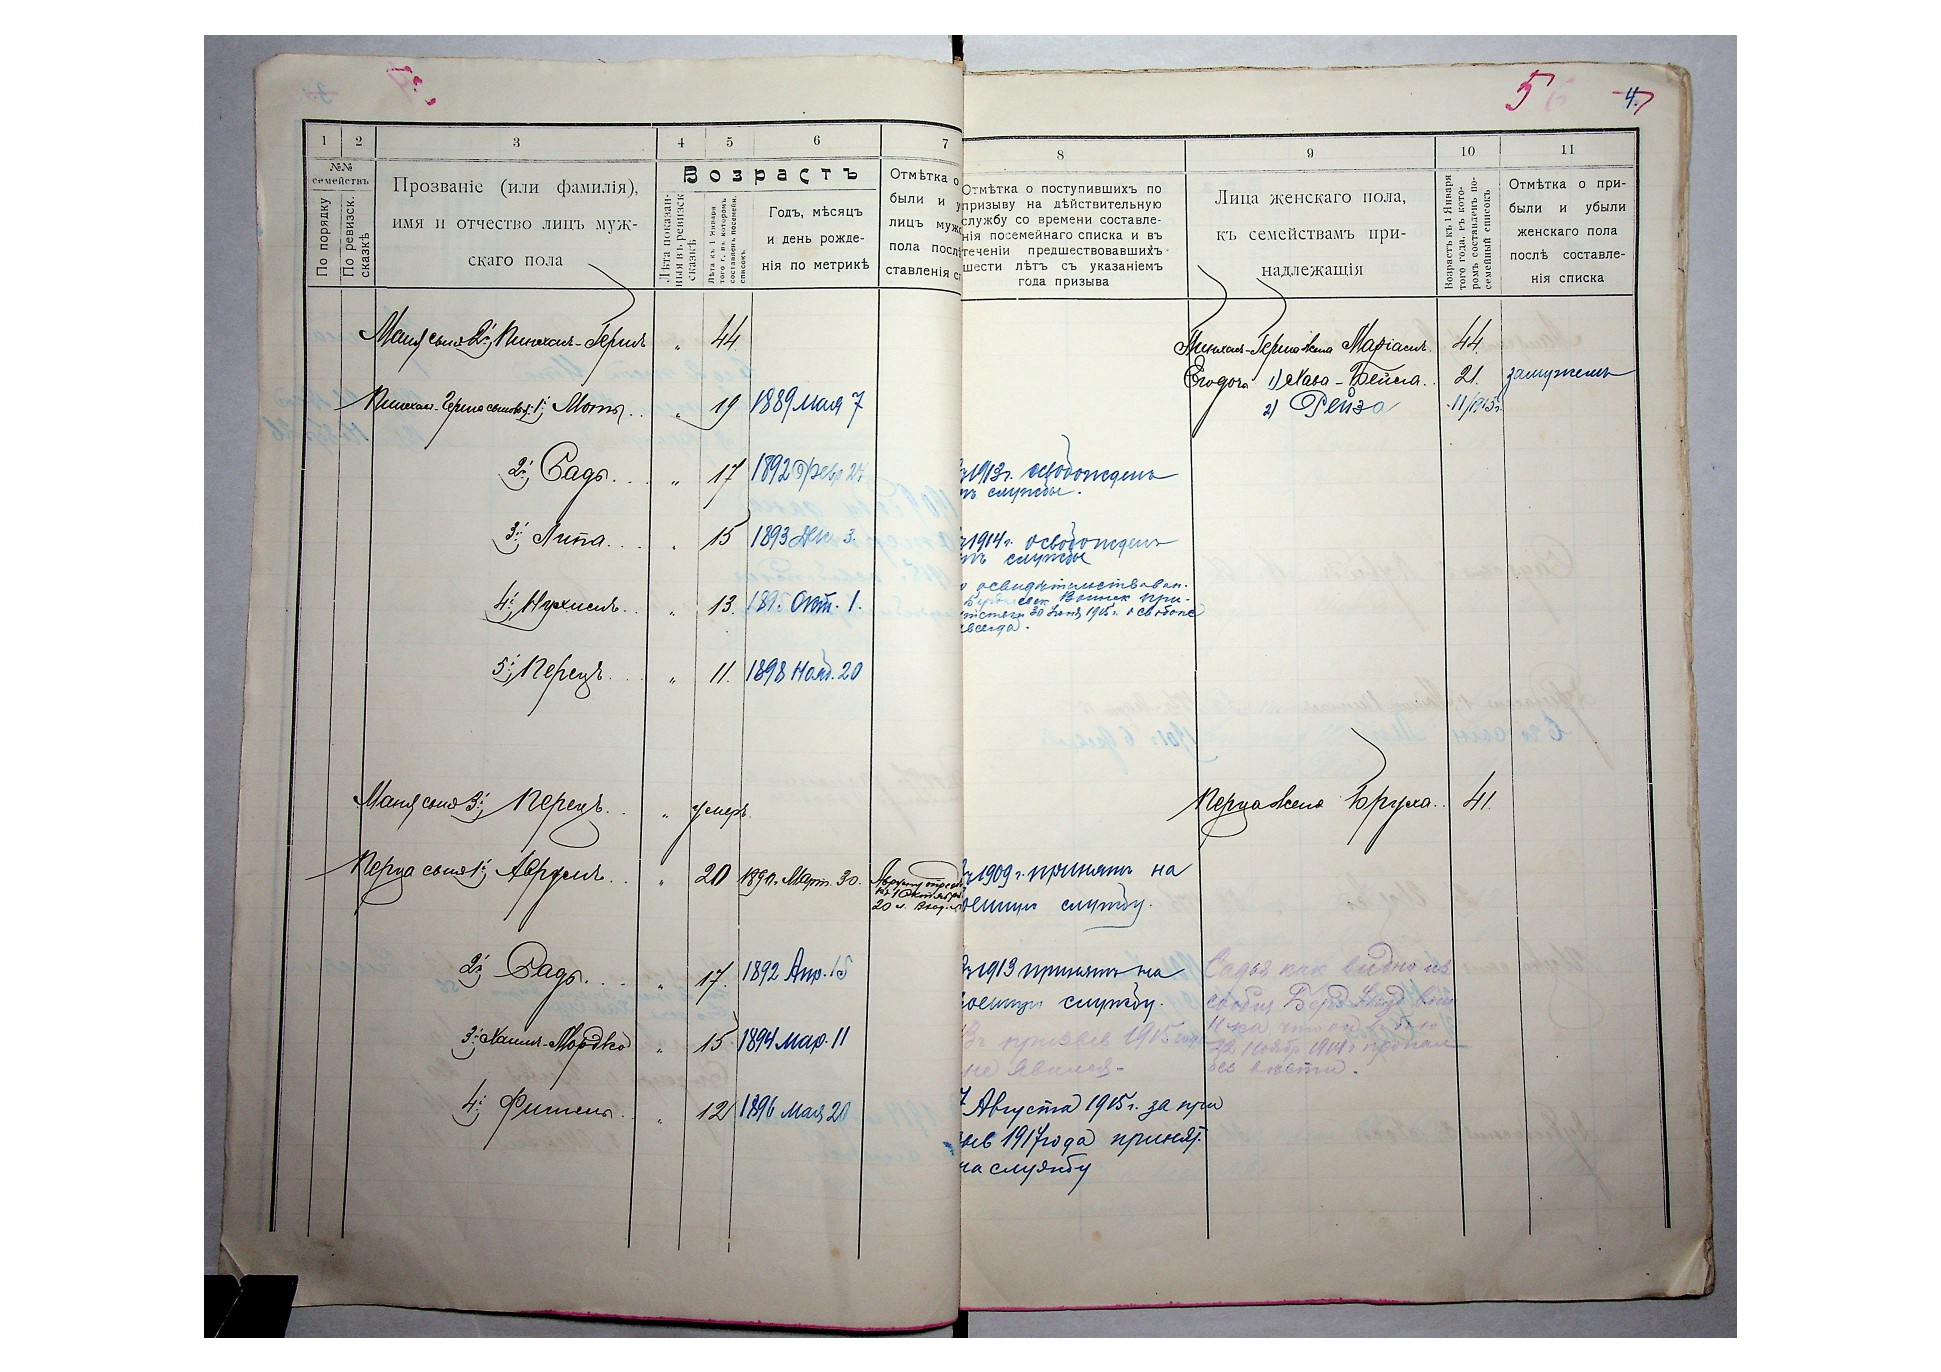 5 4
1 2 3 4 5 6 7
№№ семействъ
По порядку
По ревизск. сказкѣ
Прозваніе (или фамилія),
имя и отчество лицъ муж-
скаго пола
Возрастъ
Лѣта показан-
ныя въ ревизск
сказкѣ
Лѣта къ 1 Января
того г., въ которомъ
составленъ посемейн.
списокъ
Годъ, мѣсяцъ
и день рожде-
нія по метрикѣ
Отмѣтка о
были и у
лицъ муж
пола посл
ставленія сп
8 9 10 11
Отмѣтка о поступившихъ по
призыву на дѣйствительную
службу со времени составле-
нія посемейнаго списка и въ
теченіи предшествовавшихъ
шести лѣтъ съ указаніемъ
года призыва
Лица женскаго пола,
къ семействамъ при-
надлежащія
Возрастъ къ 1 Января
того года, въ кото-
ромъ составленъ по-
семейный списокъ
Отмѣтка о при-
были и убыли
женскаго пола
послѣ составле-
нія списка
Маня сына 2й Пинхасъ-Гершъ " 44
Пинхасъ-Герша жена Маріасъ. 44.
Егодочь 1) Хава-Бейла.. 21. замужемъ
Пинхасъ-Герша сыновья: 1й Мот.. " 19 1889 мая 7
2) Рейза 11/1915г.
2й Садъ. . . " 17 1892 Февр 24
1913г. освобожденъ
службы.
3й Липа. . . " 15 1893 Дек. 3.
1914г. освобожденъ
службы
4й Нухимъ. . " 13. 189 . Окт. 1.
освидѣтельствован.
Воинск при-
30 Іюня 1915г. освобож
всегда.
5й Перецъ. . . " 11. 1898 Нояб. 20
Маня сына 3й Перецъ. . " умеръ.
Перца жена Бруха. . 41.
Перца сынъ 1й Аврумъ. . " 20 1890г. Март. 30.
20 и. Вход.
1909г. принятъ на
военную службу.
2й Садъ. . . . " 17. 1892 Апр. 15
1913 принятъ на
военную службу.
Садья как видно из
сообщ Берд Уезд Воин
Н-ка что он в бою
22 Ноябр 1914г пропал
без вести.
3й Хаимъ-Мордко " 15 1894 мар. 11
Въ призыв 1915 года
не явился-
4й Фишель. . " 12 1896 мая 20
7 Августа 1915г. за при
зыв 1917 года принят
на службу